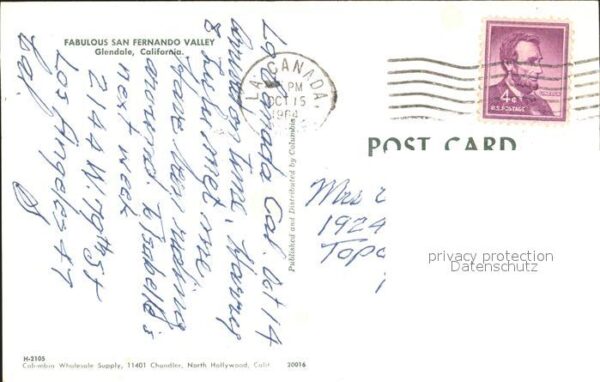 FABULOUS SAN FERNANDO VALLEY
Glendale, California.
La Canada Cal. Oct 14
on time. Harry
& Lulu met me
have been visiting
around. Isabelle's
next week
244 W. 79th St
Los Angeles 47
Cal.
Published and Distributed by Columbia
LA CANADA
PM
OCT 15
4¢
U.S. POSTAGE
POST CARD
Mrs
1924
Top
privacy protection
Datenschutz
H-2105
Columbia Wholesale Supply, 11401 Chandler, North Hollywood, Calif.
20016